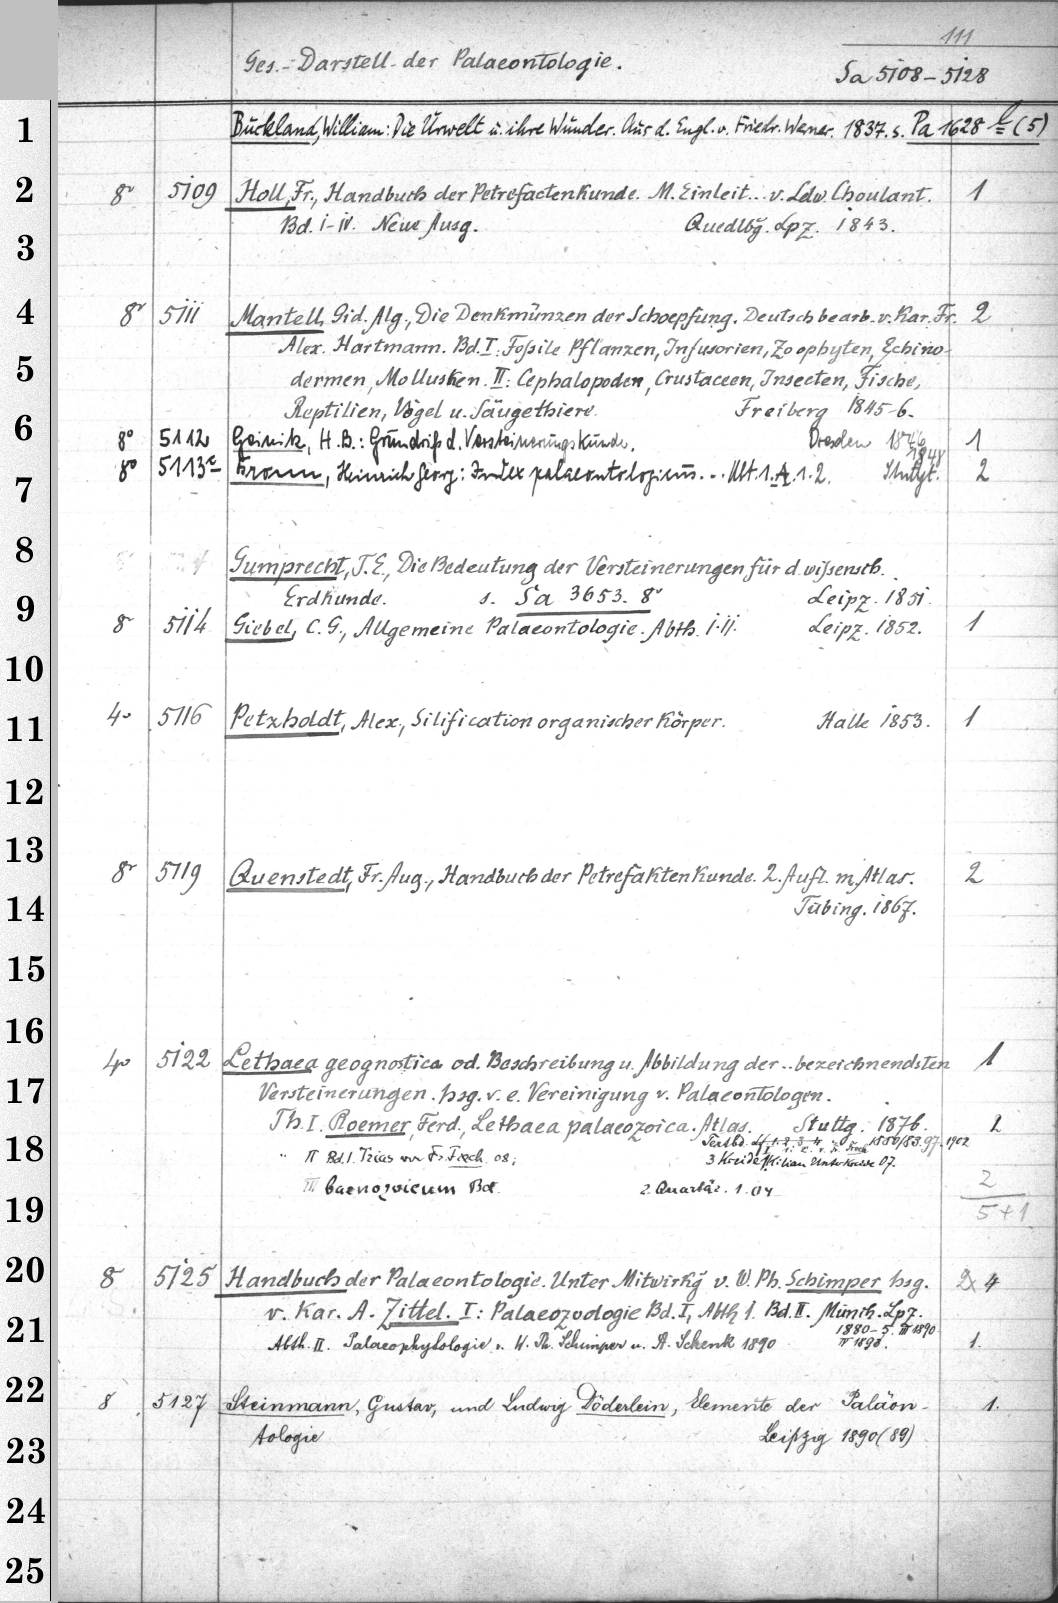 111
Ges.-Darstell. der Palaeontologie. Sa 5108-5128
1 Buckland, William: Die Urwelt u. ihre Wunder. Aus d. Engl. v. Friedr. Werner. 1837. s. Pa 1628 (5)
2 8° 5109 Holl, Fr., Handbuch der Petrefactenkunde. M. Einleit... v. Ldw. Choulant. 1
Bd. I-IV. Neue Ausg. Quedlbg. Lpz. 1843.
3
4 8° 5111 Mantell, Gid. Alg., Die Denkmünzen der Schoepfung. Deutsch bearb. v. Kar. Fr. 2
Alex. Hartmann. Bd. I: Fossile Pflanzen, Infusorien, Zoophyten, Echino-
5 dermen, Mollusken. II: Cephalopoden, Crustaceen, Insecten, Fische,
Reptilien, Vögel u. Säugethiere. Freiberg 1845-6.
6 8° 5112 Geinitz, H. B.: Grundriß d. Versteinerungskunde. Dresden 1846 1
8° 5113 Bronn, Heinrich Georg: Index palaeontologicus... Abt. 1. A. 1. 2. Stuttgt. 1848 2
7
8 Gumprecht, T. E., Die Bedeutung der Versteinerungen für d. wissensch.
Erdkunde. s. Sa 3653. 8° Leipz. 1851.
9 8° 5114 Giebel, C. G., Allgemeine Palaeontologie. Abth. I. II. Leipz. 1852. 1
10
11 4° 5116 Petzholdt, Alex., Silification organischer Körper. Halle 1853. 1
12
13
8° 5119 Quenstedt, Fr. Aug., Handbuch der Petrefaktenkunde. 2. Aufl. m. Atlas. 2
14 Tübing. 1867.
15
16
4° 5122 Lethaea geognostica od. Beschreibung u. Abbildung der .. bezeichnendsten 1
17 Versteinerungen. hsg. v. e. Vereinigung v. Palaeontologen.
Th. I. Roemer, Ferd., Lethaea palaeozoica. Atlas. Stuttg. 1876. 1
18 Textbd. 1880/83. 97. 1902
" II Bd. 1. Trias von Fr. Frech 08; 3 Kreide Kilian Unterkreide 07.
III Caenozoicum Bd. 2. Quartär. 1. 04 2
19 5+1
20 8° 5125 Handbuch der Palaeontologie. Unter Mitwirkg v. W. Ph. Schimper hsg. 2x 4
v. Kar. A. Zittel. I: Palaeozoologie Bd. I, Abth 1. Bd. II. Münch. Lpz.
21 1880-5. III 1890
Abth. II. Palaeophytologie v. W. Ph. Schimper u. A. Schenk 1890 1.
22 8 5127 Steinmann, Gustav, und Ludwig Döderlein, Elemente der Paläon- 1.
23 tologie Leipzig 1890 (89)
24
25